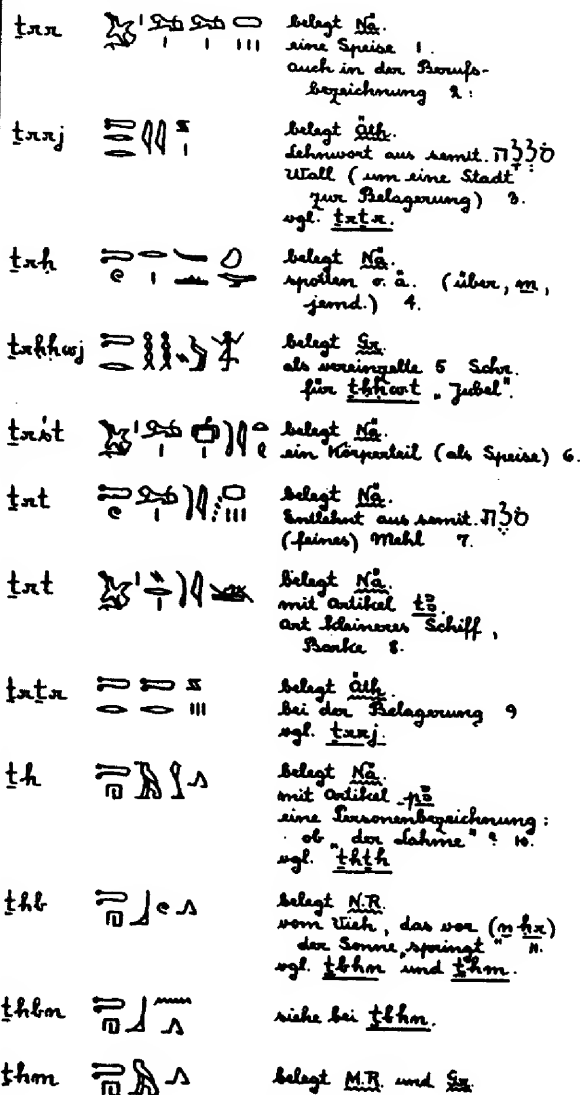 ṯrr belegt Nä.
eine Speise 1.
auch in der Berufs-
bezeichnung 2:
ṯrrj belegt Äth.
Lehnwort aus semit. סֹלֲלָה
Wall (um eine Stadt
zur Belagerung) 3.
vgl. ṯrṯr.
ṯrḥ belegt Nä.
spotten o. ä. (über, m,
jemd.) 4.
ṯrḥḥwj belegt Gr.
als vereinzelte 5 Schr.
für ṯḥḥwt „Jubel".
ṯrśt belegt Nä.
ein Körperteil (als Speise) 6.
ṯrt belegt Nä.
Entlehnt aus semit. סֹלֶת
(feines) Mehl 7.
ṯrt belegt Nä.
mit Artikel tꜣ
Art kleineres Schiff,
Barke 8.
ṯrṯr belegt Äth.
bei der Belagerung 9
vgl. ṯrrj.
ṯh belegt Nä.
mit Artikel pꜣ
eine Personenbezeichnung:
ob „der Lahme" ? 10.
vgl. ṯhṯh
ṯhb belegt N.R.
vom Vieh, das vor (n ḥr)
der Sonne „springt" 11.
vgl. ṯbhn und ṯhm.
ṯhbn siehe bei ṯbhn.
ṯhm belegt M.R. und Gr.